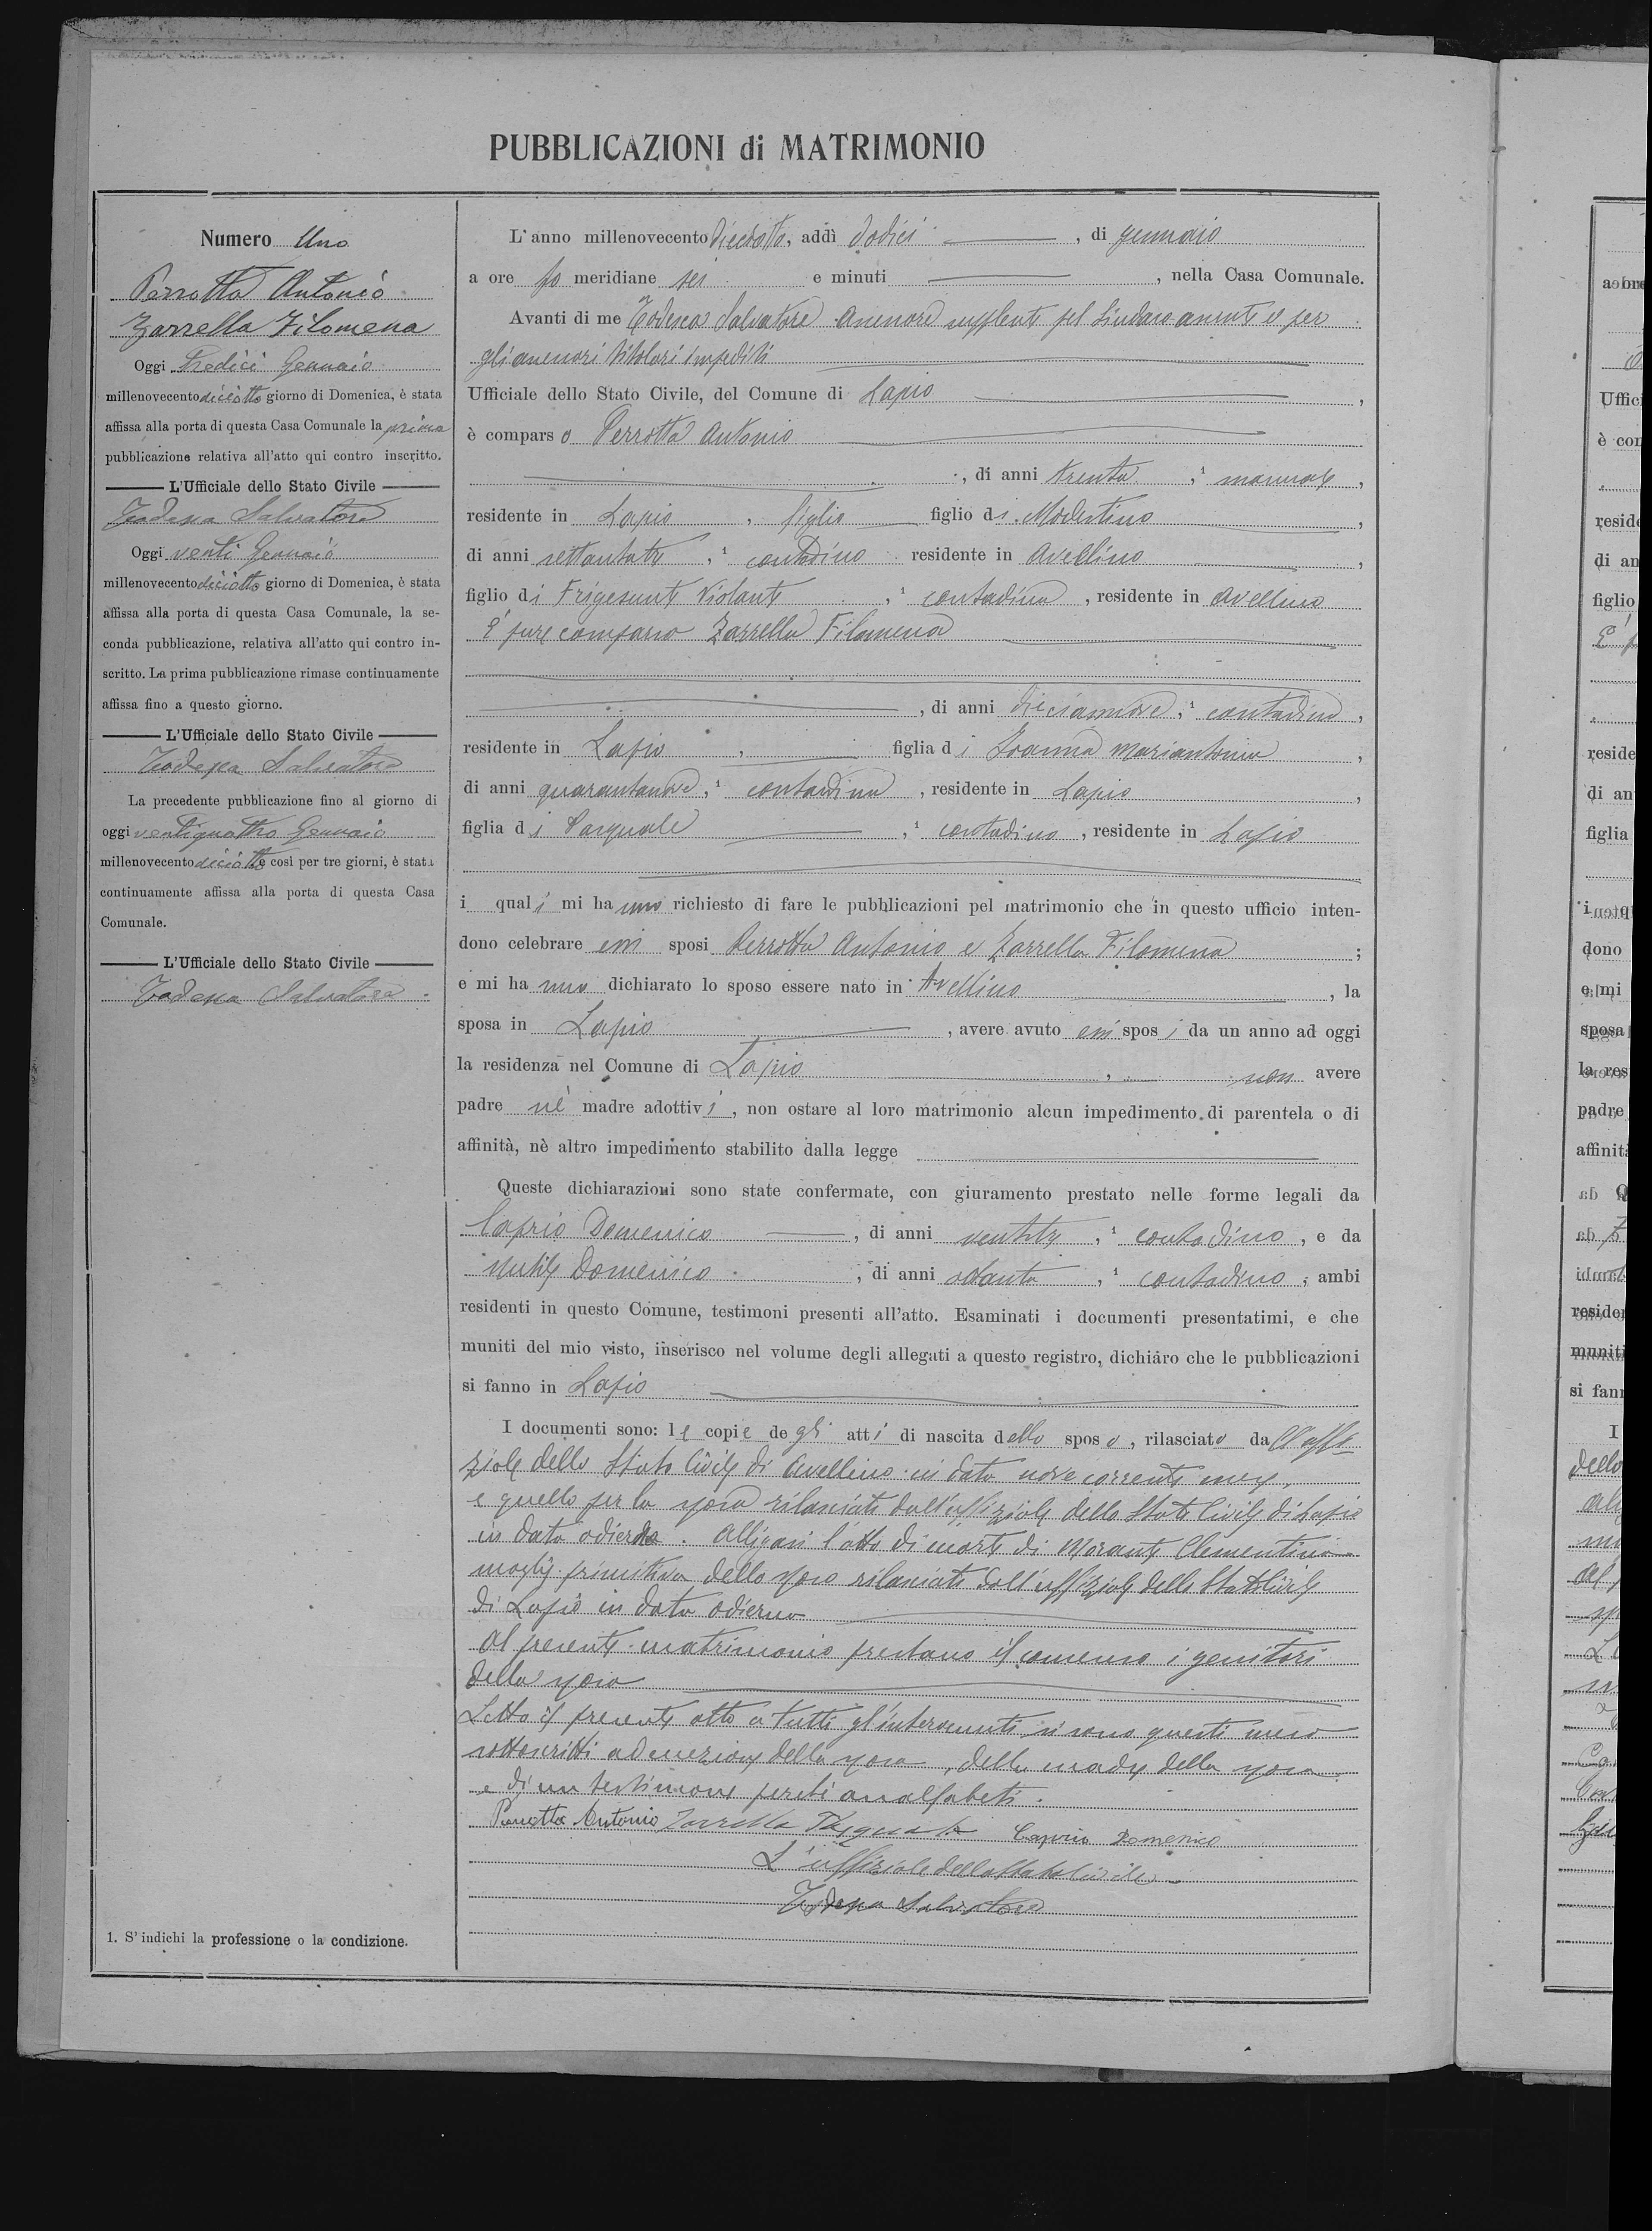 PUBBLICAZIONI di MATRIMONIO
Numero Uno
Perrotta Antonio
Zarrella Filomena
Oggi Tredici Gennaio
millenovecento diciotto giorno di Domenica, è stata
affissa alla porta di questa Casa Comunale la prima
pubblicazione relativa all'atto qui contro inscritto.
L'Ufficiale dello Stato Civile
Todesca Salvatore
Oggi venti Gennaio
millenovecento diciotto giorno di Domenica, è stata
affissa alla porta di questa Casa Comunale, la se-
conda pubblicazione, relativa all'atto qui contro in-
scritto. La prima pubblicazione rimase continuamente
affissa fino a questo giorno.
L'Ufficiale dello Stato Civile
Todesca Salvatore
La precedente pubblicazione fino al giorno di
oggi ventiquattro Gennaio
millenovecento diciotto e così per tre giorni, è stata
continuamente affissa alla porta di questa Casa
Comunale.
L'Ufficiale dello Stato Civile
Todesca Salvatore
1. S'indichi la professione o la condizione.
L'anno millenovecento dieciotto, addì dodici, di gennaio
a ore po meridiane sei e minuti, nella Casa Comunale.
Avanti di me Todesca Salvatore Assessore supplente pel Sindaco assente e per
gli assessori titolari impediti
Ufficiale dello Stato Civile, del Comune di Lapio,
è comparso Perrotta Antonio
, di anni trenta, ¹ manuale,
residente in Lapio, figlio figlio di Modestino,
di anni settantatre, ¹ contadino residente in Avellino,
figlio di Frigesunte Violante, ¹ contadina, residente in Avellino
È pure comparso Zarrella Filomena
, di anni diciannove, ¹ contadina,
residente in Lapio, figlia di Joanna Mariantonia,
di anni quarantanove, ¹ contadina, residente in Lapio,
figlia di Pasquale, ¹ contadino, residente in Lapio
i quali mi hanno richiesto di fare le pubblicazioni pel matrimonio che in questo ufficio inten-
dono celebrare essi sposi Perrotta Antonio e Zarrella Filomena;
e mi hanno dichiarato lo sposo essere nato in Avellino, la
sposa in Lapio, avere avuto essi sposi da un anno ad oggi
la residenza nel Comune di Lapio, non avere
padre nè madre adottivi, non ostare al loro matrimonio alcun impedimento di parentela o di
affinità, nè altro impedimento stabilito dalla legge
Queste dichiarazioni sono state confermate, con giuramento prestato nelle forme legali da
Caprio Domenico, di anni ventitre, ¹ contadino, e da
Nutile Domenico, di anni ottanta, ¹ contadino, ambi
residenti in questo Comune, testimoni presenti all'atto. Esaminati i documenti presentatimi, e che
muniti del mio visto, inserisco nel volume degli allegati a questo registro, dichiaro che le pubblicazioni
si fanno in Lapio
I documenti sono: le copie degli atti di nascita dello sposo, rilasciato dall'uffi
ziale dello Stato Civile di Avellino in data nove corrente mese,
e quello per la sposa rilasciato dall'uffiziale dello Stato Civile di Lapio
in data odierna. Alligasi l'atto di morte di Morante Clementina
moglie primitiva dello sposo rilasciato dall'uffiziale dello Stato Civile
di Lapio in data odierna
Al presente matrimonio prestano il consenso i genitori
della sposa
Letto il presente atto a tutti gl'intervenuti si sono questi meco
sottoscritti ad eccezione della sposa, della madre della sposa
e di un testimone perchè analfabeti.
Perrotta Antonio Zarrella Pasquale Caprio Domenico
L'uffiziale dello Stato Civile
Todesca Salvatore